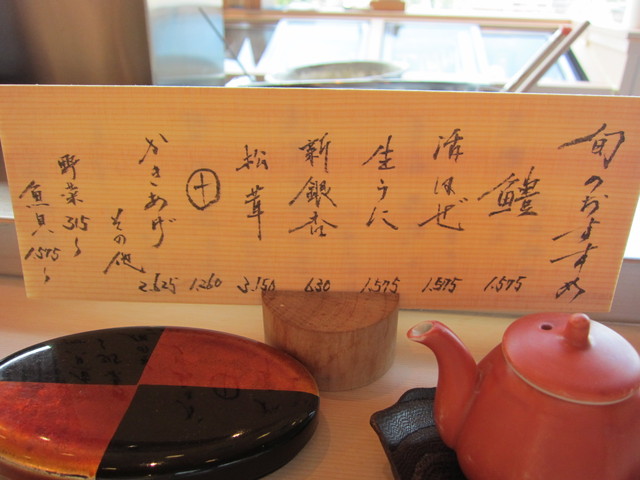 旬のおすすめ
鱧 1.575
活はぜ 1.575
生うに 1.575
新銀杏 630
松茸 3.150
㊉ 1.260
かきあげ 2.625
その他
野菜 315〜
魚貝 1.575〜